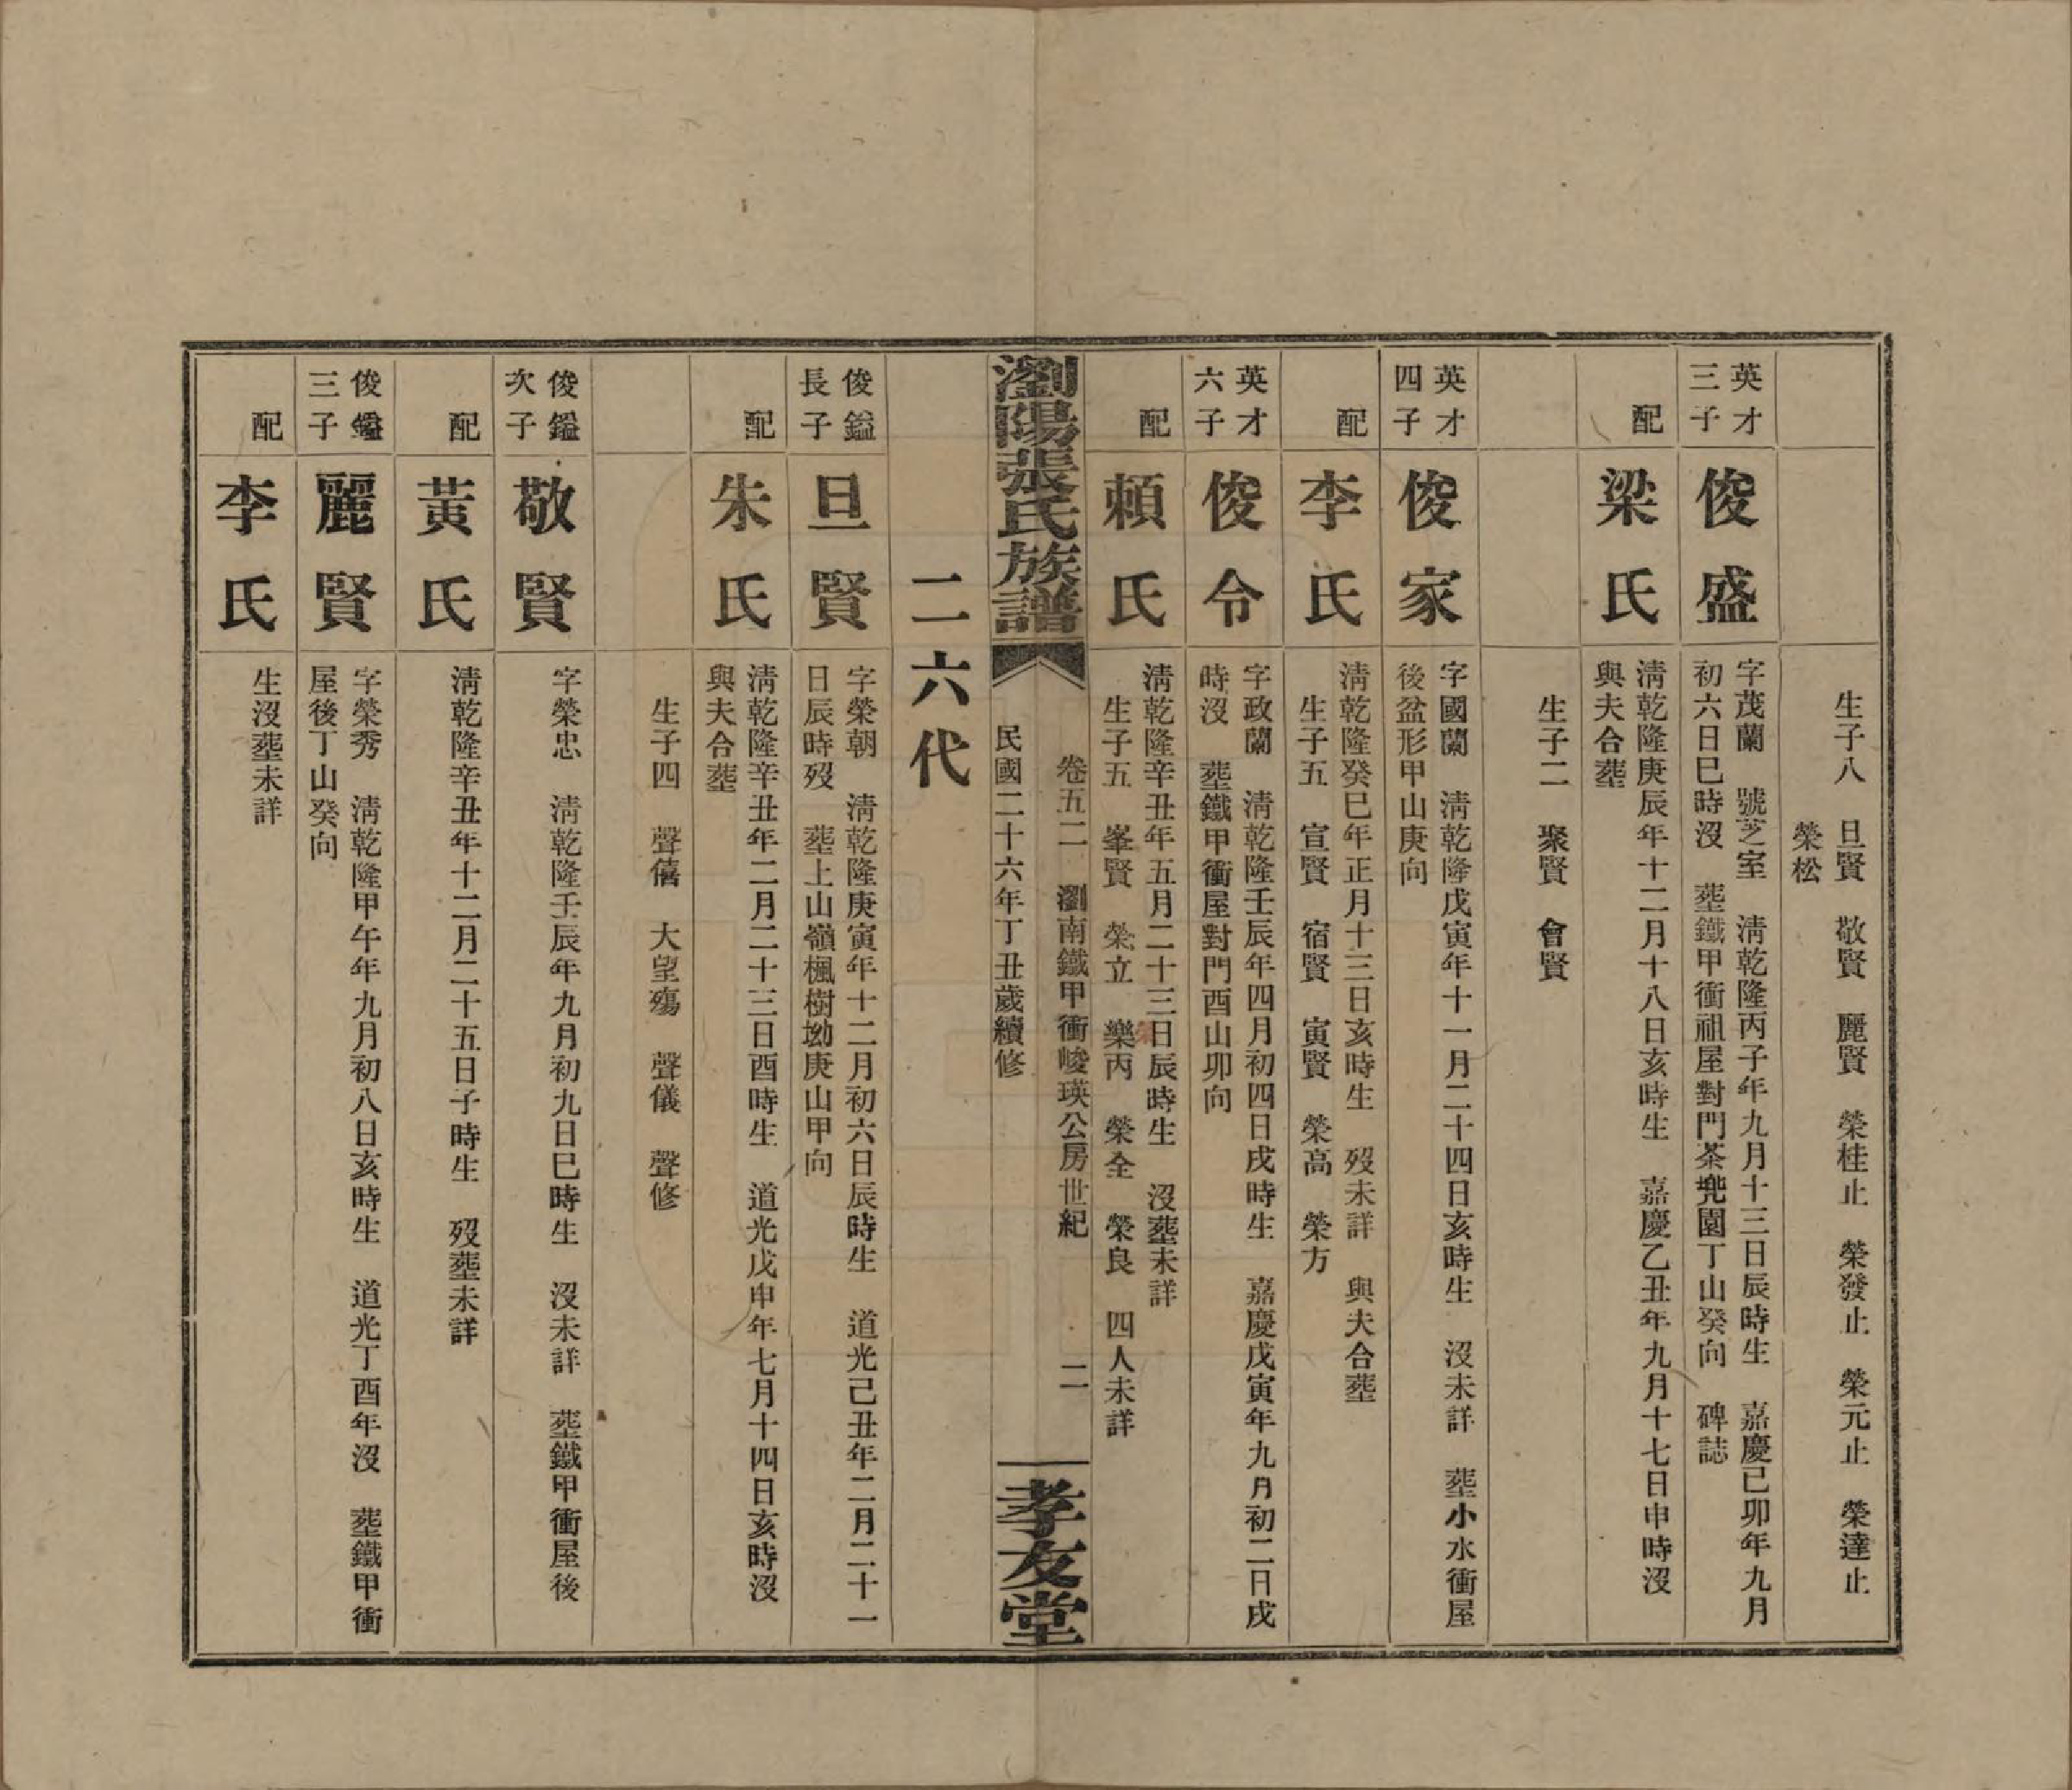 生子八　旦賢　敬賢　麗賢　榮桂止　榮發止　榮元止　榮達止
榮松
英才
三子
俊盛
字茂蘭　號芝室　清乾隆丙子年九月十三日辰時生　嘉慶己卯年九月
初六日巳時沒　塟鐵甲衝祖屋對門茶兠園丁山癸向　碑誌
配
梁氏
清乾隆庚辰年十二月十八日亥時生　嘉慶乙丑年九月十七日申時沒
與夫合塟
生子二　聚賢　會賢
英才
四子
俊家
字國蘭　清乾隆戊寅年十一月二十四日亥時生　沒未詳　塟小水衝屋
後盆形甲山庚向
配
李氏
清乾隆癸巳年正月十三日亥時生　歿未詳　與夫合塟
生子五　宣賢　宿賢　寅賢　榮高　榮方
英才
六子
俊令
字政蘭　清乾隆壬辰年四月初四日戌時生　嘉慶戊寅年九月初二日戌
時沒　塟鐵甲衝屋對門酉山卯向
配
賴氏
清乾隆辛丑年五月二十三日辰時生　沒塟未詳
生子五　峯賢　榮立　樂丙　榮全　榮良　四人未詳
瀏陽張氏族譜
卷五二　瀏南鐵甲衝峻瑛公房世紀　二
民國二十六年丁丑歲續修
孝友堂
二六代
俊鎰
長子
旦賢
字榮朝　清乾隆庚寅年十二月初六日辰時生　道光己丑年二月二十一
日辰時歿　塟上山嶺楓樹坳庚山甲向
配
朱氏
清乾隆辛丑年二月二十三日酉時生　道光戊申年七月十四日亥時沒
與夫合塟
生子四　聲僖　大望殤　聲儀　聲修
俊鎰
次子
敬賢
字榮忠　清乾隆壬辰年九月初九日巳時生　沒未詳　塟鐵甲衝屋後
配
黃氏
清乾隆辛丑年十二月二十五日子時生　歿塟未詳
俊鎰
三子
麗賢
字榮秀　清乾隆甲午年九月初八日亥時生　道光丁酉年沒　塟鐵甲衝
屋後丁山癸向
配
李氏
生沒塟未詳